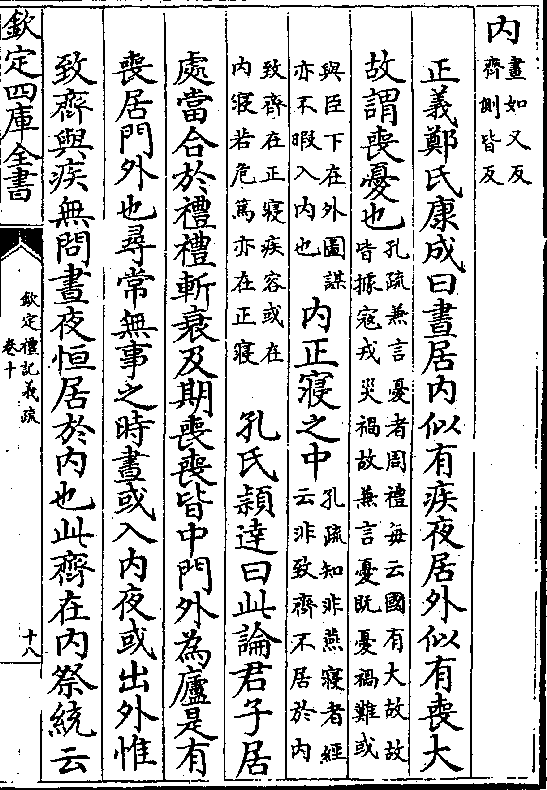 内
晝如又反
齊側皆反
正義鄭氏康成曰晝居内似有疾夜居外似有喪大
故謂喪憂也
孔疏兼言憂者周禮每云國有大故故
皆據寇戎災禍故兼言憂既憂禍難或
與臣下在外圖謀
亦不暇入内也
内正寢之中
孔疏知非燕寢者經
云非致齊不居於内
致齊在正寢疾容或在
内寢若危篤亦在正寢
孔氏頴達曰此論君子居
處當合於禮禮斬衰及期喪喪皆中門外為廬是有
喪居門外也尋常無事之時晝或入内夜或出外惟
致齊與疾無問晝夜恒居於内也此齊在内祭統云
欽定四庫全書
欽定禮記義疏
卷十
十八